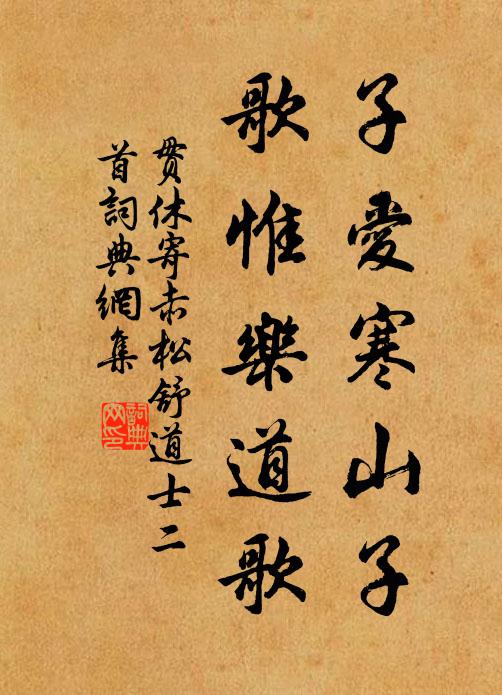 子愛寒山子
歌惟樂道歌
貫休寄赤松舒道士二
首詞典網集
詞典
网印